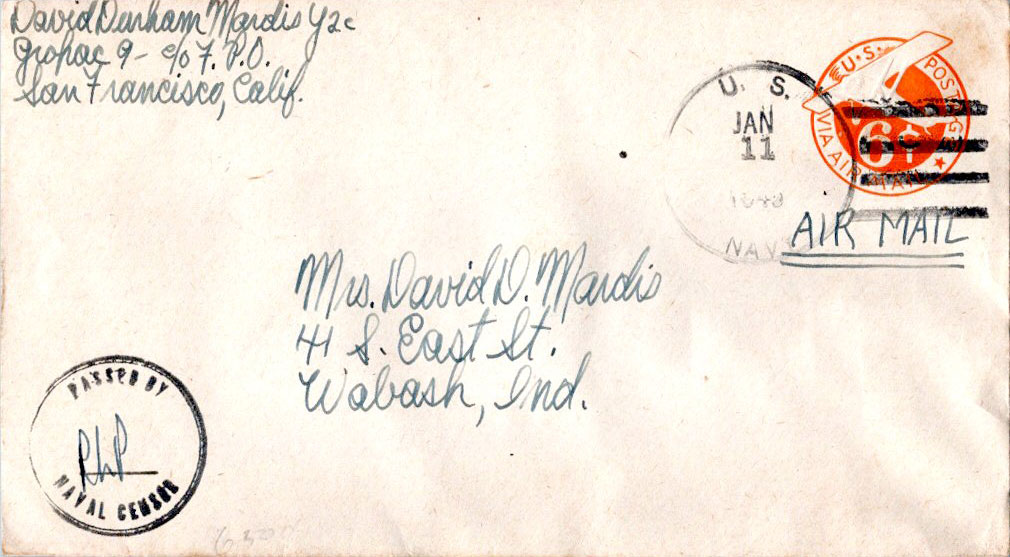 David Durham Mardis Y2c
Gropac 9 - c/o F.P.O.
San Francisco, Calif.
U.S. POSTAGE
VIA AIR MAIL
6¢
U. S.
JAN
11
NAVY
AIR MAIL
Mrs. David D. Mardis
41 S. East St.
Wabash, Ind.
PASSED BY
NAVAL CENSOR